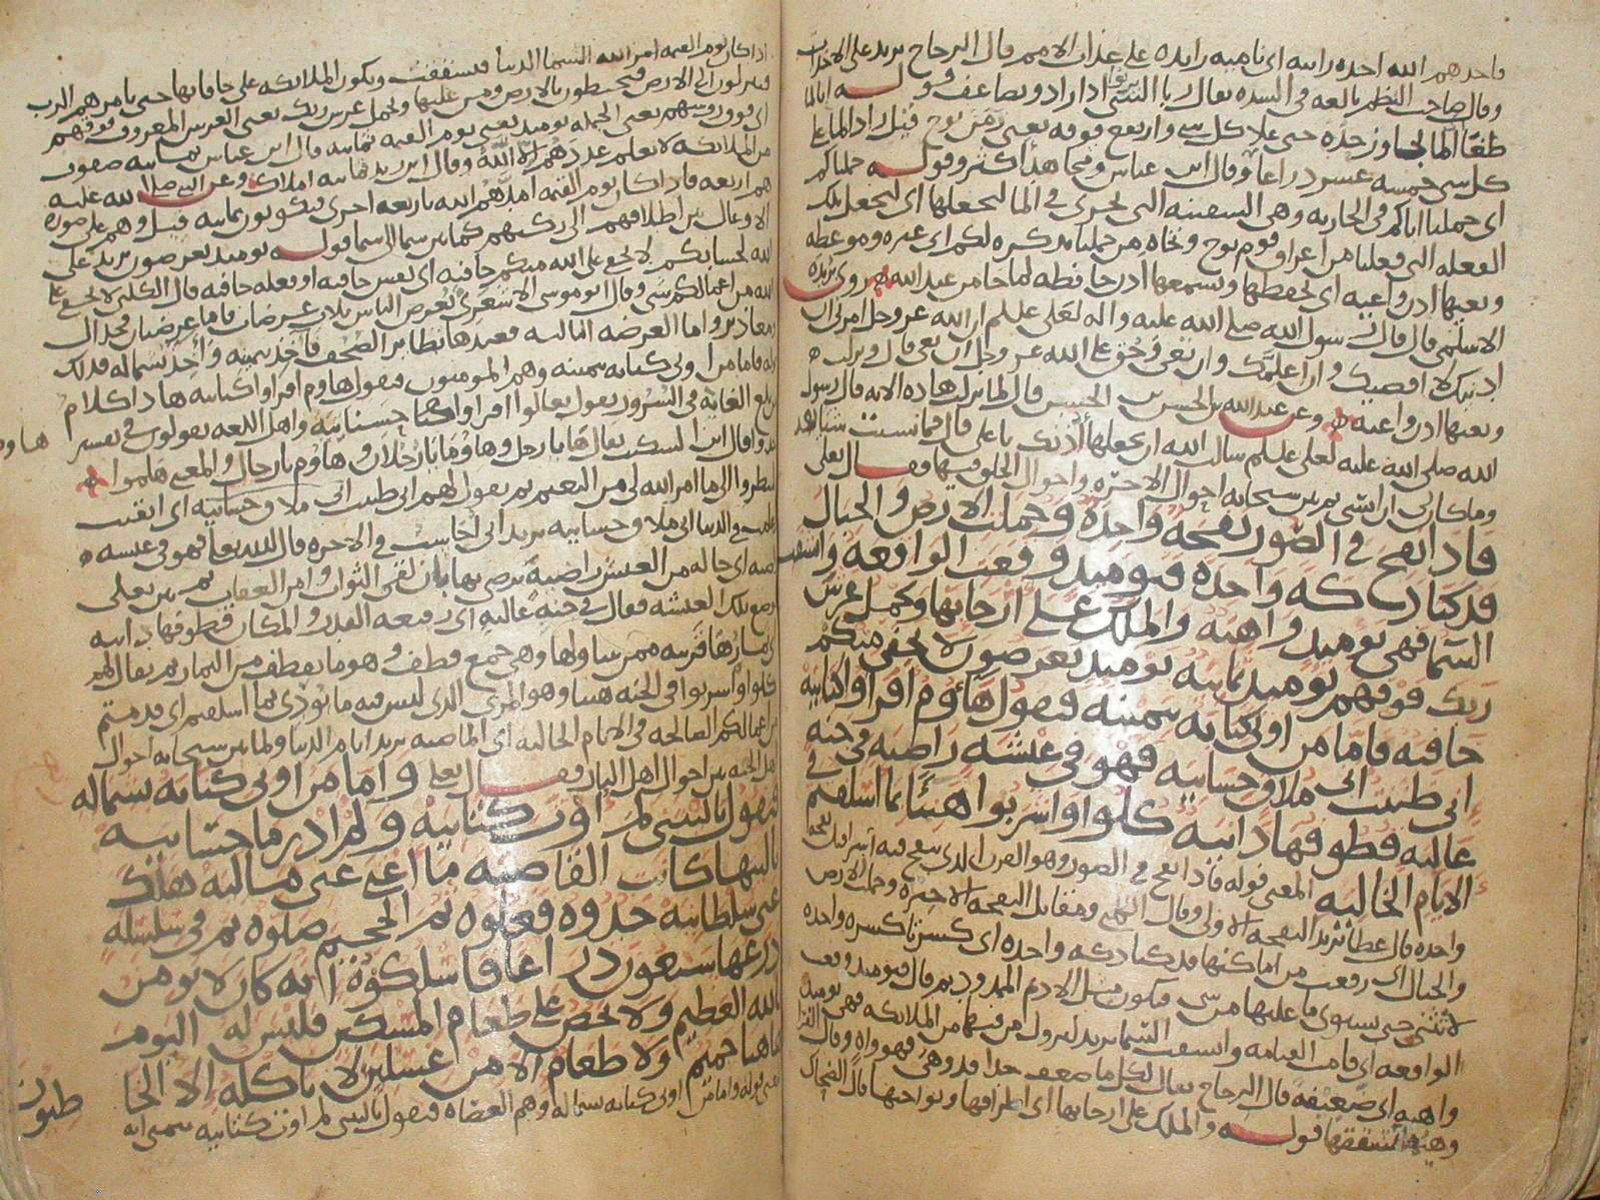 فاخذهم الله اخذه رابيه اى ناميه زايده على عذاب الامم قال الزجاج يريد على الاخذات
وقال صاحب النظم بالغه فى الشده يقال ربا الشى اذا زاد وتضاعف قوله انا لما
طغا الما تجاوز حده حتى علا كل شى وارتفع فوقه يعنى زمن نوح قيل زاد الما على
كل شى خمسه عشر ذراعا وقال ابن عباس طغا هذا كثر وقوله حملناكم
اى حملنا اباكم فى الجاريه وهى السفينه التى تجرى فى الما لنجعلها اى لنجعل تلك
الفعله التى فعلنا من اغراق قوم نوح ونجاه من حملنا تذكره لكم اى عبره وموعظه
وتعيها اذن واعيه اى تحفظها وتسمعها اذن حافظه لما جا من عند الله روى بريده
الاسلمى قال قال رسول الله صلى الله عليه واله لعلى علـلم ان الله عز وجل امرنى ان
ادنيك ولا اقصيك وان اعلمك وان تعى وحق على الله عز وجل ان تعى قال ونزلت
وتعيها اذن واعيه وعن عبد الله بن الحسن بن الحسين قال لما نزلت هذه الايه قال رسول
الله صلى الله عليه لعلى علـلم سالت الله ان يجعلها اذنك يا على قال فما نسيت شيا بعد
وما كان لى ان انسى ثم بين سبحانه احوال الاخره واحوال الخلق فيها فقال تعلى
فاذا نفخ فى الصور نفخه واحده وحملت الارض والجبال
فدكتا دكه واحده فيوميذ وقعت الواقعه وانشقت
السما فهى يوميذ واهيه والملك على ارجايها ويحمل عرش
ربك فوقهم يوميذ ثمانيه يوميذ تعرضون لا تخفى منكم
خافيه فاما من اوتى كتابه بيمينه فيقول هاوم اقراوا كتابيه
انى ظننت انى ملاق حسابيه فهو فى عيشه راضيه فى جنه
عاليه قطوفها دانيه كلوا واشربوا هنيئا بما اسلفتم فى
الايام الخاليه المعنى قوله فاذا نفخ فى الصور وهو القرن الذى ينفخ فيه اسرافيل نفخه
واحده قال عطا يريد النفخه الاولى وقال الكلبى ومقاتل النفخه الاخيره وحملت الارض
والجبال اى رفعت من اماكنها فدكتا دكه واحده اى كسرتا كسره واحده
لا تثنى حتى يستوى ما عليها من شى فتكون مثل الاديم الممدود ثم قال فيوميذ وقعت
الواقعه اى قامت القيامه وانشقت السما يريد لنزول من فيها من الملائكه فهى يوميذ
واهيه اى ضعيفه قال الزجاج يقال لكل ما ضعف جدا قد وهى فهو واه وقال الفرا
وهيها تشققها قوله والملك على ارجايها اى اطرافها ونواحيها قال الضحاك
اذا كان يوم القيمه امر الله السما الدنيا فتشققت وتكون الملائكه على حافاتها حتى يامرهم الرب
فينزلون الى الارض فيحيطون بالارض ومن عليها ويحمل عرش ربك يعنى العرش المعروف فوقهم
اى فوق روسهم يعنى الحمله يوميذ يعنى يوم القيمه ثمانيه قال ابن عباس ثمانيه صفوف
من الملائكه لا يعلم عددهم الا الله وقال ابن زيد ثمانيه املاك وعن النبى صلى الله عليه
هم اربعه فاذا كان يوم القيمه امدهم الله باربعه اخرى فيكونون ثمانيه قيل وهم على صوره
الاوعال بين اظلافهم الى ركبهم كما بين سما الى سما قوله يوميذ تعرضون يريد على
الله لحسابكم لا تخفى على الله منكم خافيه اى نفس خافيه او فعله خافيه قال الكلبى لا تخفى على
الله من اعمالكم شى وقال ابو موسى الاشعرى يعرض الناس ثلاث عرضات فاما عرضتان فجدال
ومعاذير واما العرضه الثالثه فعندها تطاير الصحف فاخذ بيمينه واخذ بشماله فذلك
قوله فاما من اوتى كتابه بيمينه وهم المومنون فيقول هاوم اقراوا كتابيه هذا كلام
من بلغ الغايه فى السرور يقول تعالوا اقراوا كتاب حسناتيه واهل اللغه يقولون فى تفسير هاوم
خذوا قال ابن السكيت يقال ها يا رجل وهاوما يا رجلان وهاوم يا رجال والمعنى هلموا
انظروا الى ما امر الله لى من النعيم ثم يقول لهم انى ظننت انى ملاق حسابيه اى ايقنت
وعلمت فى الدنيا انى ملاق حسابيه يريد انى احاسب فى الاخره قال الله تعالى فهو فى عيشه
راضيه اى حاله من العيش راضيه يرضى بها بان لقى الثواب وامن العقاب ثم بين تعلى
موضع تلك العيشه فقال فى جنه عاليه اى رفيعه القدر والمكان قطوفها دانيه
اى ثمارها قريبه ممن يتناولها وهى جمع قطف وهو ما يقطف من الثمار ثم يقال لهم
كلوا واشربوا فى الجنه هنيا وهو المرى الذى ليس فيه ما يوذى بما اسلفتم اى قدمتم
من اعمالكم الصالحه فى الايام الخاليه اى الماضيه يريد ايام الدنيا ولما بين سبحانه احوال
اهل الجنه بين احوال اهل النار فقال تعلى واما من اوتى كتابه بشماله
فيقول يا ليتنى لم اوت كتابيه ولم ادر ما حسابيه
يا ليتها كانت القاضيه ما اغنى عنى ماليه هلك
عنى سلطانيه خذوه فغلوه ثم الجحيم صلوه ثم فى سلسله
ذرعها سبعون ذراعا فاسلكوه انه كان لا يومن
بالله العظيم ولا يحض على طعام المسكين فليس له اليوم
هاهنا حميم ولا طعام الا من غسلين لا ياكله الا الخا
طيون
المعنى قوله واما من اوتى كتابه بشماله وهم العصاه فيقول يا ليتنى لم اوت كتابيه يتمنى انه